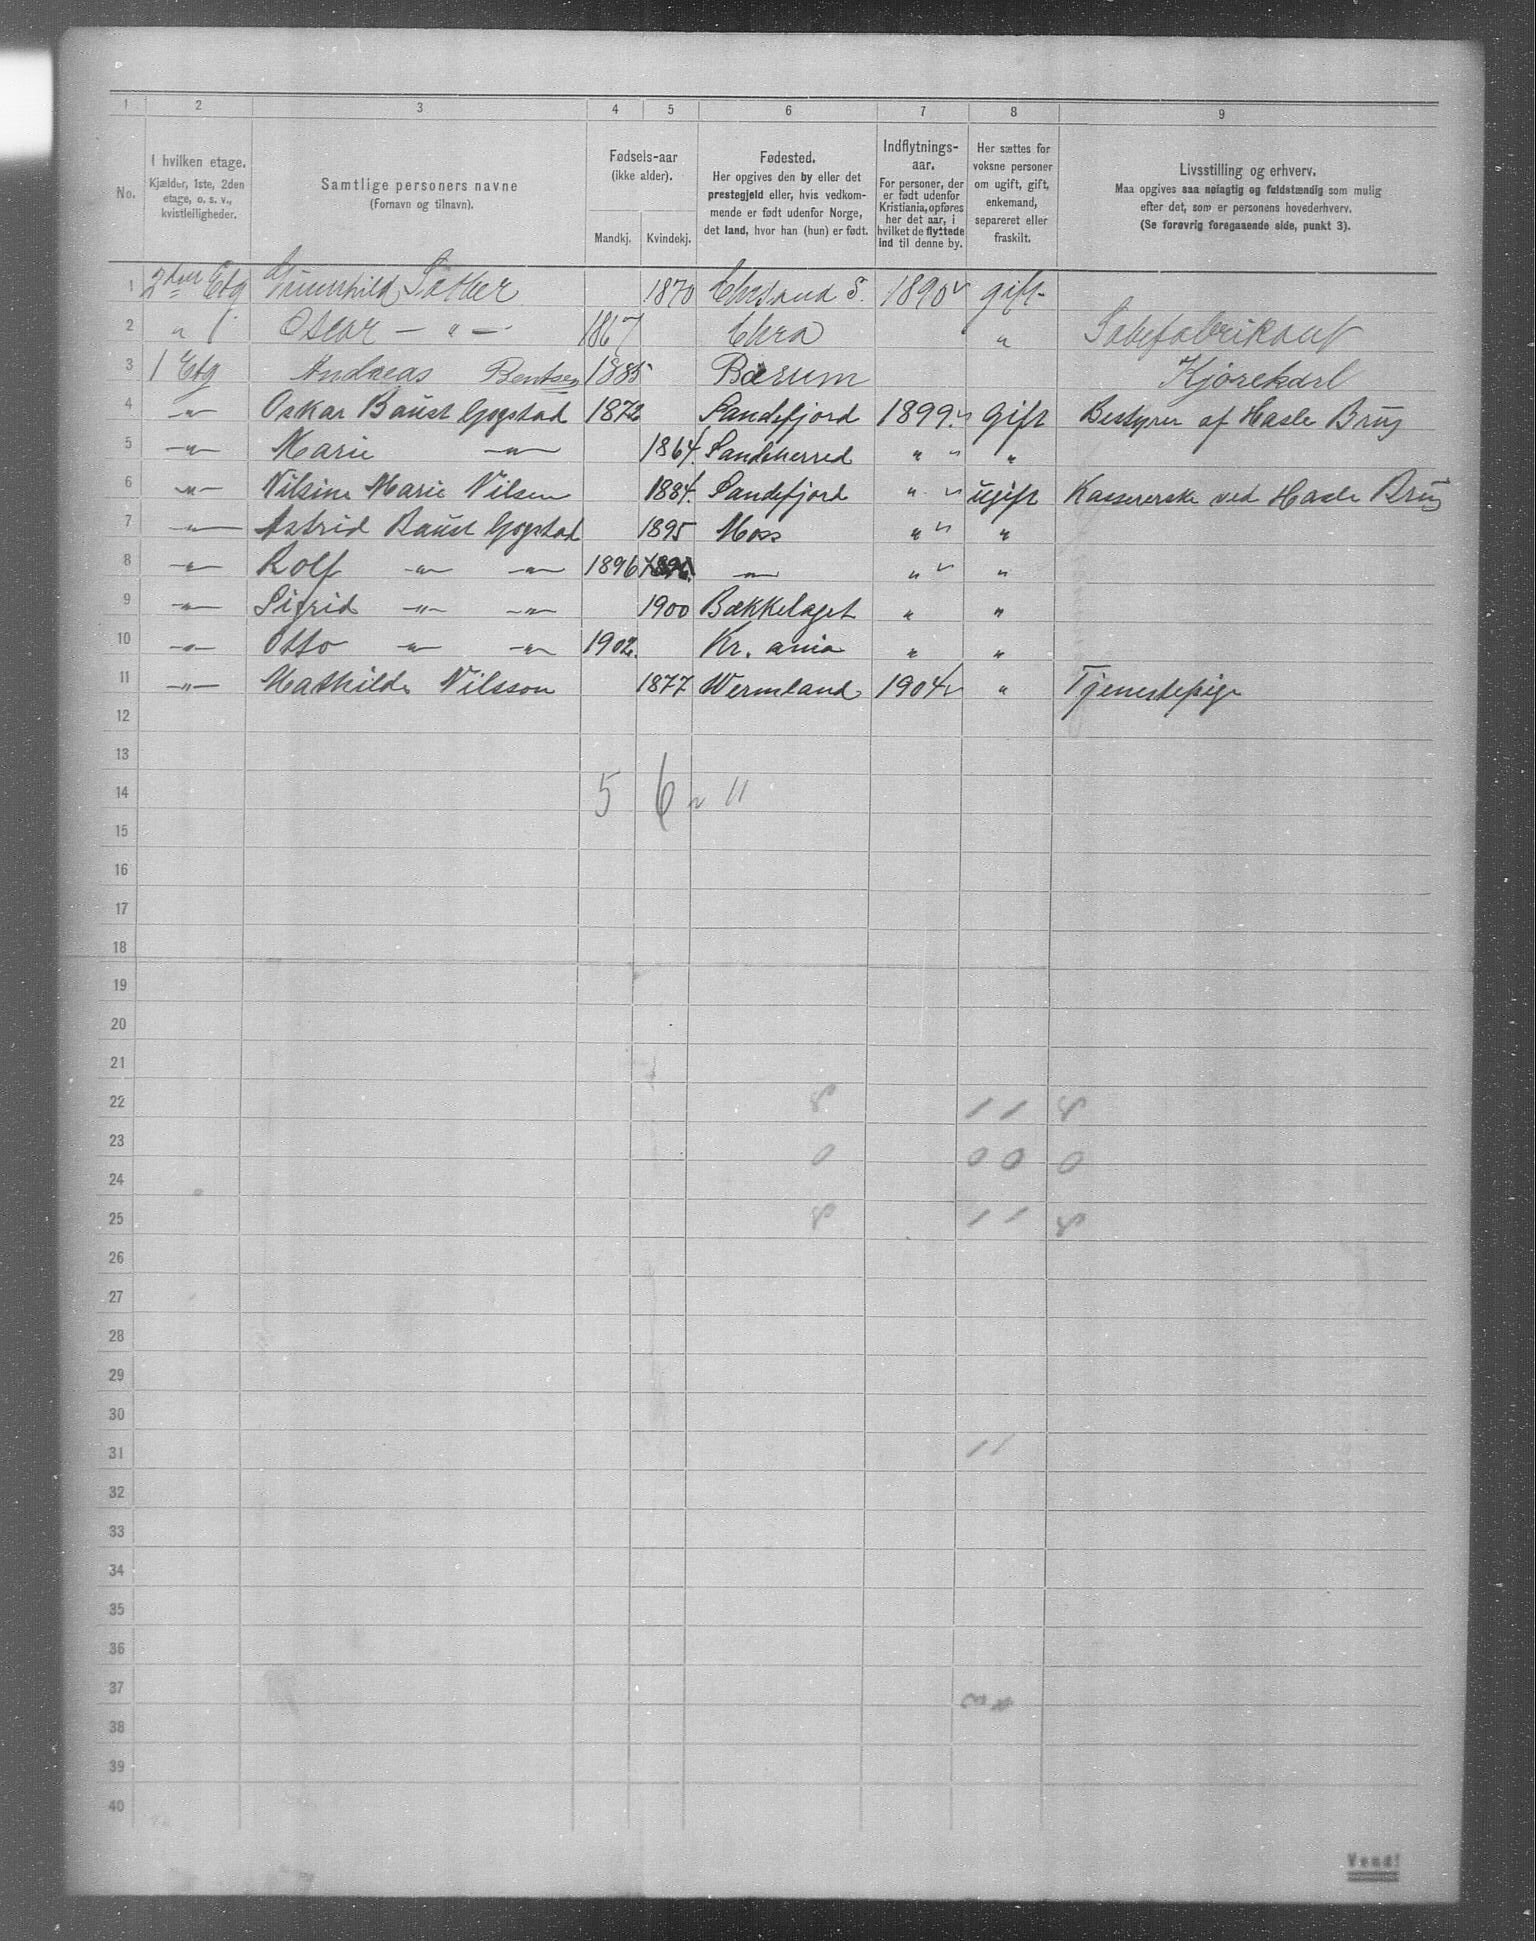 1 2 3 4 5 6 7 8 9
No.
I hvilken etage.
Kjælder, 1ste, 2den
etage, o. s. v.,
kvistleiligheder.
Samtlige personers navne
(Fornavn og tilnavn).
Fødsels-aar
(ikke alder).
Mandkj. Kvindekj.
Fødested.
Her opgives den by eller det
prestegjeld eller, hvis vedkom-
mende er født udenfor Norge,
det land, hvor han (hun) er født.
Indflytnings-
aar.
For personer, der
er født udenfor
Kristiania, opføres
her det aar, i
hvilket de flyttede
ind til denne by.
Her sættes for
voksne personer
om ugift, gift,
enkemand,
separeret eller
fraskilt.
Livsstilling og erhverv.
Maa opgives saa nøiagtig og fuldstændig som mulig
efter det, som er personens hovederhverv.
(Se forøvrig foregaaende side, punkt 3).
1 2den Etg Gunnhild Sother 1870 Chrsand S. 1890 gift
2 " Oscar — " — 1867 Chra " Sæbefabrikant
3 1 Etg Andreas Bentsen 1885 Bærum Kjørekarl
4 —"— Oskar Baust Gogstad 1872 Sandefjord 1899 Gift Bestyrer af Hasle Brug
5 —"— Marie —"— 1864. Sandeherred " "
6 —"— Nilsine Marie Nilsen 1884. Sandefjord " ugift Kassererske ved Hasle Brug
7 —"— Astrid Baust Gogstad 1895 Moss " "
8 —"— Rolf —"— —"— 1896 1896 —"— " "
9 —"— Sigrid —"— —"— 1900 Bækkelaget " "
10 —"— Otto —"— —"— 1902. Kr. ania " "
11 —"— Mathilde Nilsson 1877 Wermland 1904 " Tjenestepige
12
13
14 5 6 11
15
16
17
18
19
20
21
22
23
24
25
26
27
28
29
30
31
32
33
34
35
36
37
38
39
40
Vend!